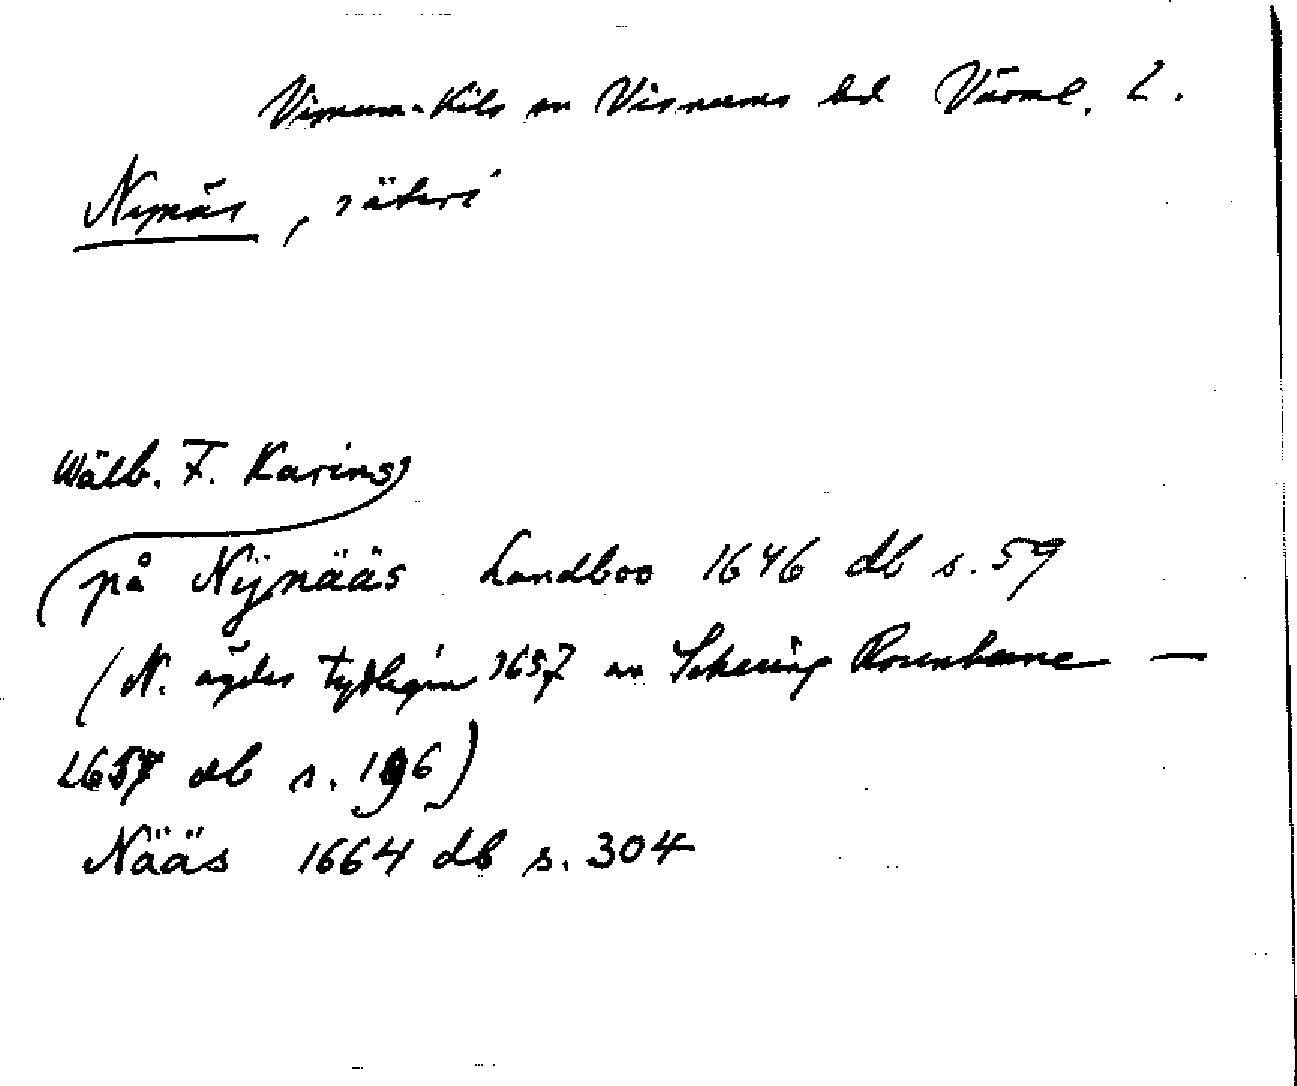 Visnum-Kils sn Visnums hd Värml. L.
Nynäs, säteri
Wälb. F. Karins
på Nÿnääs Landboo 1646 db s. 59
(N. ägdes tydligen 1657 av Schering Rosenhane —
1657 db s. 196)
Nääs 1664 db s. 304